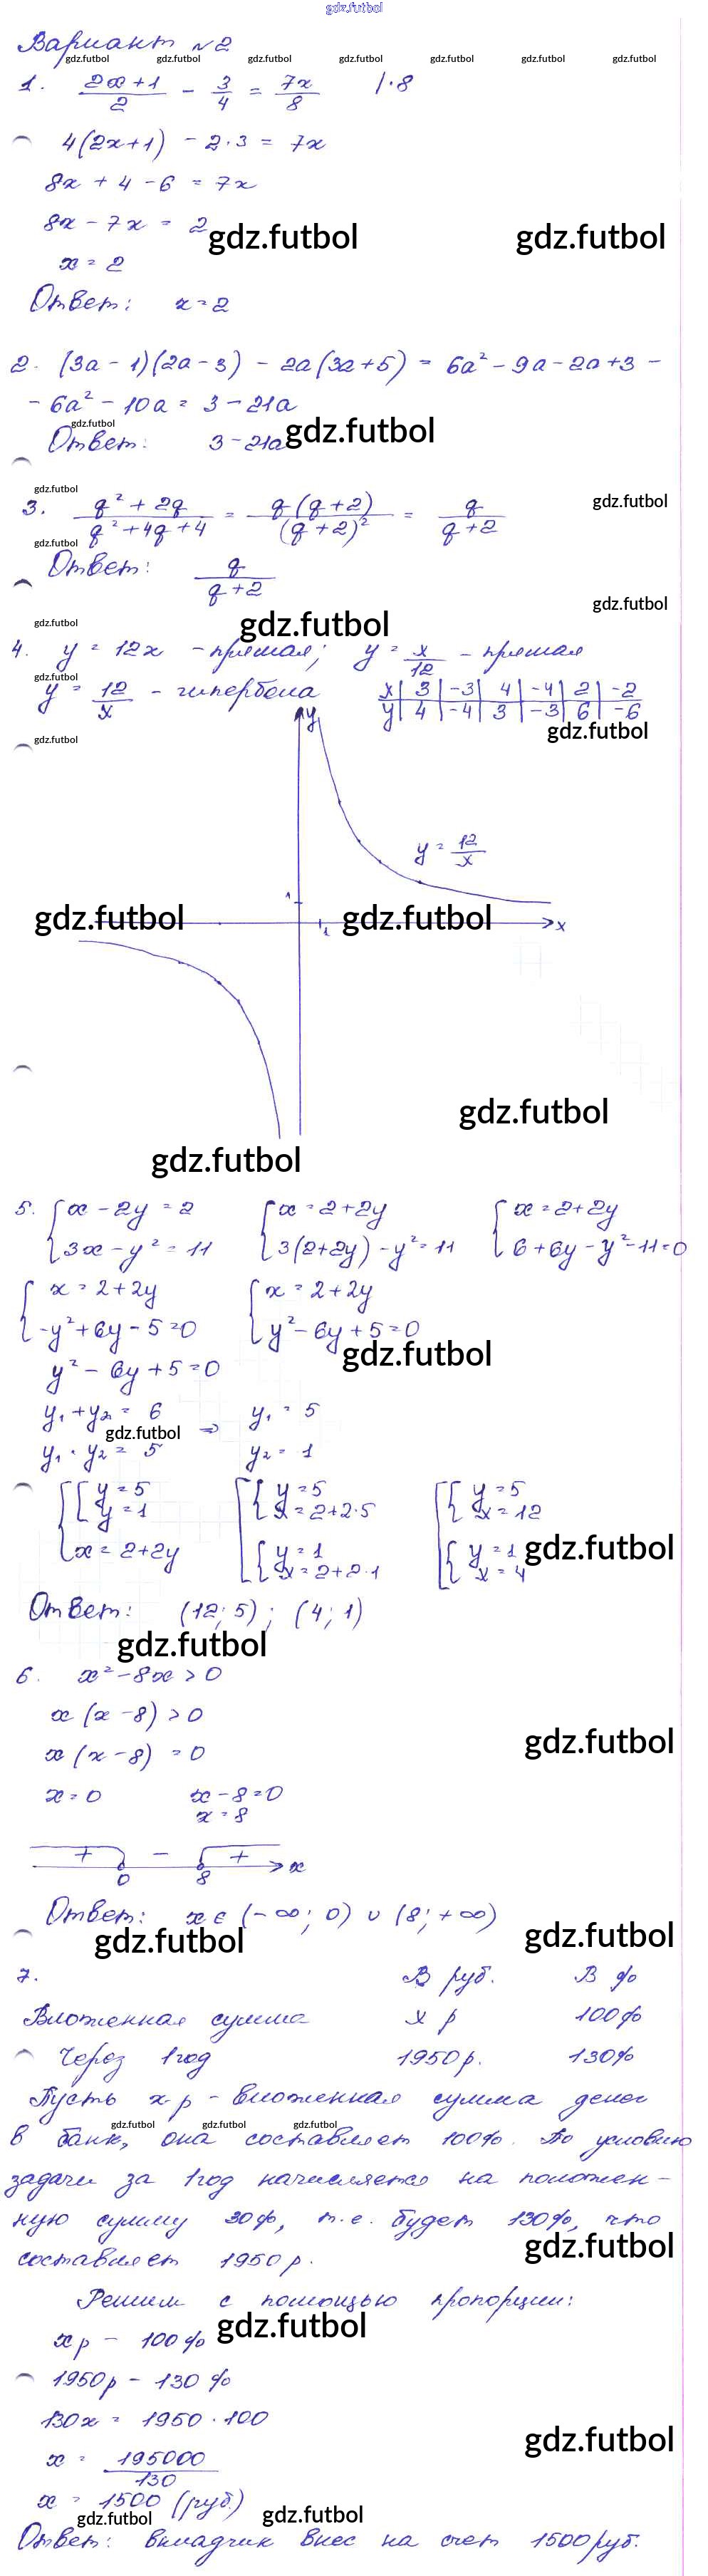 gdz.futbol
Вариант №2
gdz.futbol gdz.futbol gdz.futbol gdz.futbol gdz.futbol gdz.futbol gdz.futbol
1. (2x+1)/2 - 3/4 = 7x/8 |·8
4(2x+1) - 2·3 = 7x
8x + 4 - 6 = 7x
8x - 7x = 2
gdz.futbol gdz.futbol
x = 2
Ответ: x = 2
2. (3a - 1)(2a - 3) - 2a(3a + 5) = 6a² - 9a - 2a + 3 -
- 6a² - 10a = 3 - 21a
gdz.futbol
Ответ: 3 - 21a
gdz.futbol
gdz.futbol
3. (q² + 2q)/(q² + 4q + 4) = q(q+2)/(q+2)² = q/(q+2)
gdz.futbol
gdz.futbol
Ответ: q/(q+2)
gdz.futbol
gdz.futbol gdz.futbol
4. y = 12x - прямая; y = x/12 - прямая
gdz.futbol
y = 12/x - гипербола
x | 3 | -3 | 4 | -4 | 2 | -2
y | 4 | -4 | 3 | -3 | 6 | -6
gdz.futbol
gdz.futbol
y
y = 12/x
1
gdz.futbol gdz.futbol
1 x
gdz.futbol
gdz.futbol
5. { x - 2y = 2 { x = 2 + 2y { x = 2 + 2y
{ 3x - y² = 11 { 3(2+2y) - y² = 11 { 6 + 6y - y² - 11 = 0
{ x = 2 + 2y { x = 2 + 2y
{ -y² + 6y - 5 = 0 { y² - 6y + 5 = 0
gdz.futbol
y² - 6y + 5 = 0
y₁ + y₂ = 6 ⇒ y₁ = 5
gdz.futbol
y₁ · y₂ = 5 y₂ = 1
{ [ y = 5 [ { y = 5 [ { y = 5
y = 1 x = 2 + 2·5 x = 12
x = 2 + 2y { y = 1 { y = 1
x = 2 + 2·1 x = 4
gdz.futbol
Ответ: (12; 5); (4; 1)
gdz.futbol
6. x² - 8x > 0
x(x - 8) > 0
gdz.futbol
x(x - 8) = 0
x = 0 x - 8 = 0
x = 8
+ - + x
0 8
Ответ: x ∈ (-∞; 0) ∪ (8; +∞)
gdz.futbol gdz.futbol
7. В руб. В %
Вложенная сумма x р 100%
Через 1 год 1950 р. 130%
Пусть x р - вложенная сумма денег
gdz.futbol gdz.futbol gdz.futbol
в банк, она составляет 100%. По условию
задачи за 1 год начисляется на положен-
ную сумму 30%, т.е. будет 130%, что
gdz.futbol
составляет 1950 р.
Решим с помощью пропорции:
gdz.futbol
x р - 100%
1950 р - 130%
130x = 1950 · 100
gdz.futbol
x = 195000/130
x = 1500 (руб.)
gdz.futbol gdz.futbol
Ответ: вкладчик внес на счет 1500 руб.